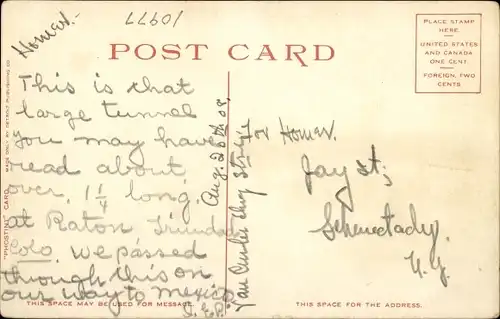 10977
Homer.-
POST CARD
PLACE STAMP
HERE.
UNITED STATES
AND CANADA
ONE CENT.
FOREIGN, TWO
CENTS
"PHOSTINT" CARD
MADE ONLY BY DETROIT PUBLISHING CO.
This is that
large tunnel
you may have
read about
over 1 1/4 long,
at Raton Trinidad
Colo. we passed
through this on
our way to Mexico
J. E. P.
Aug. 28th 08.
Van Curler
for Homer.
Jay st;
Schenectady.
N.Y.
THIS SPACE MAY BE USED FOR MESSAGE.
THIS SPACE IS FOR THE ADDRESS.